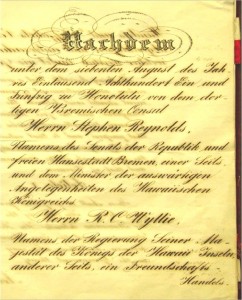 Nachdem
unter dem siebenten August des Jah
res Eintausend Achthundert Ein und
fünfzig zu Honolulu von dem der
tigen Bremischen Consul
Herrn Stephen Reynolds.
Namens des Senats der Republik und
freien Hansestadt Bremen, einer Seits
und dem Minister der auswärtigen
Angelegenheiten des Hawaiischen
Königreichs
Herrn R. C. Wyllie.
Namens der Regierung Seiner Ma-
jestät des Königs der Hawaii Inseln,
anderer Seits, ein Freundschafts-
Handels-